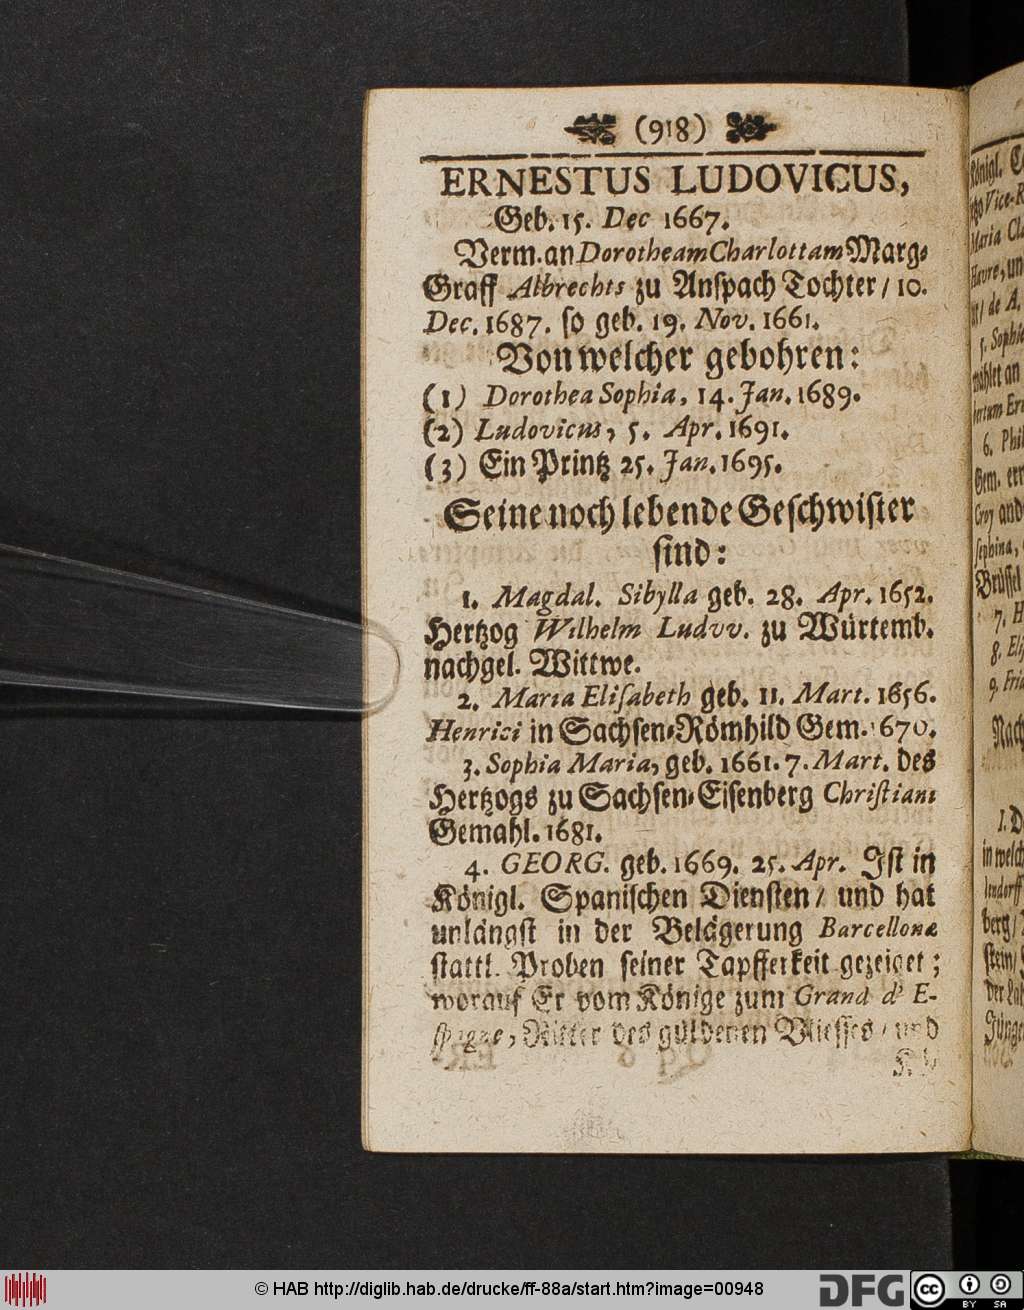 (918)
ERNESTUS LUDOVICUS,
Geb. 15. Dec 1667.
Verm. an Dorotheam Charlottam Marg-
Graff Albrechts zu Anſpach Tochter / 10.
Dec. 1687. ſo geb. 19. Nov. 1661.
Von welcher gebohren:
(1) Dorothea Sophia, 14. Jan. 1689.
(2) Ludovicus, 5. Apr. 1691.
(3) Ein Printz 25. Jan. 1695.
Seine noch lebende Geſchwiſter
ſind:
1. Magdal. Sibylla geb. 28. Apr. 1652.
Hertzog Wilhelm Ludvv. zu Würtemb.
nachgel. Wittwe.
2. Maria Eliſabeth geb. 11. Mart. 1656.
Henrici in Sachſen-Römhild Gem. 1670.
3. Sophia Maria, geb. 1661. 7. Mart. des
Hertzogs zu Sachſen-Eiſenberg Chriſtiani
Gemahl. 1681.
4. GEORG. geb. 1669. 25. Apr. Iſt in
Königl. Spaniſchen Dienſten / und hat
unlängſt in der Belägerung Barcellonæ
ſtattl. Proben ſeiner Tapfferkeit gezeiget;
worauf Er vom Könige zum Grand d' E-
ſpagne, Ritter des güldenen Vlieſſes / und
© HAB http://diglib.hab.de/drucke/ff-88a/start.htm?image=00948
DFG
cc
BY SA